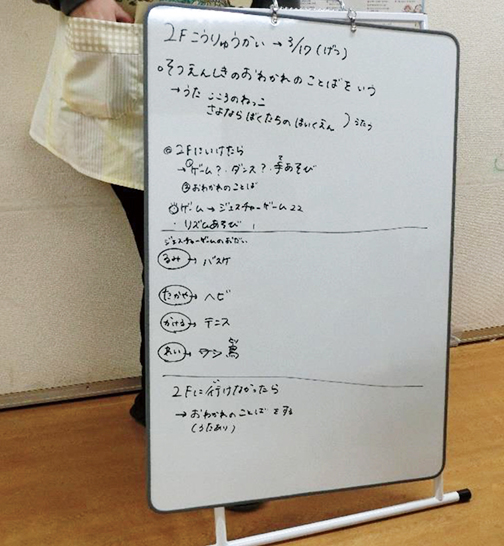 2Fこうりゅうかい → 3/17(げつ)
◦そつえんしきのおわかれのことばをいう
→うた こころのねっこ
さよならぼくたちのほいくえん ) うたう
◎2Fにいけたら
→①ゲーム?・ダンス?・手あそび
②おわかれのことば
ゲーム → ジェスチャーゲーム
・リズムあそび
ジェスチャーゲームのおだい
るみ→ バスケ
たかや→ ヘビ
かける→ テニス
あい→
2Fに行けなかったら
→ おわかれのことばをする
(うたあり)